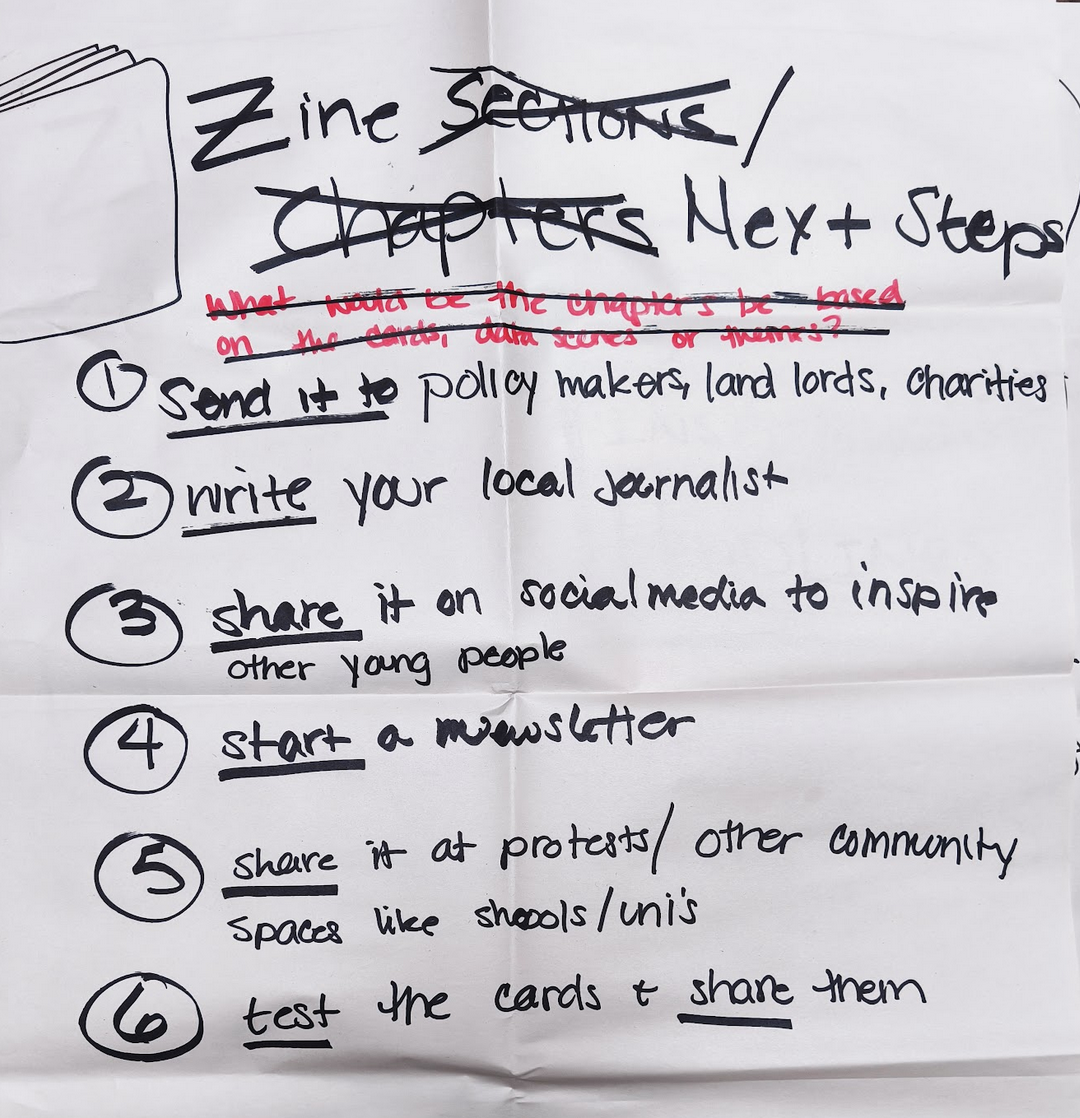 Zine Sections /
Chapters Next Steps
What would be the chapters be based
on the cards, data scenes or themes?
1 Send it to policy makers, land lords, charities
2 write your local journalist
3 share it on social media to inspire
other young people
4 start a newsletter
5 share it at protests/ other community
spaces like shools/uni's
6 test the cards + share them